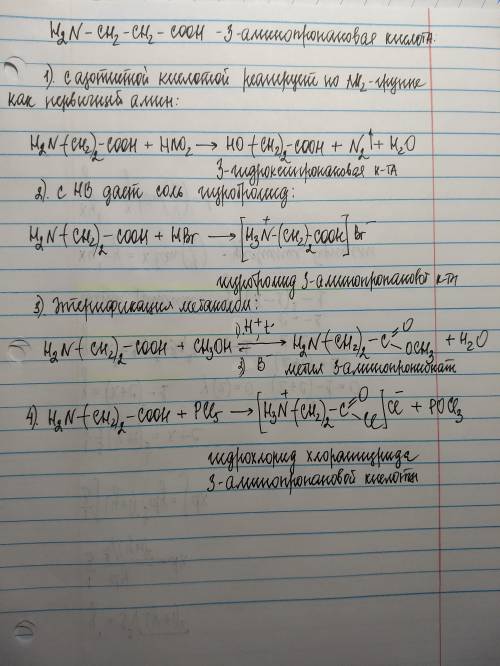 H₂N–CH₂–CH₂–COOH - 3-аминопропановая кислота.
1). с азотистой кислотой реагирует по NH₂-группе
как первичный амин:
H₂N-(CH₂)₂-COOH + HNO₂ → HO-(CH₂)₂-COOH + N₂↑ + H₂O
3-гидроксипропановая к-та
2). с HBr дает соль гидробромид:
H₂N-(CH₂)₂-COOH + HBr → [H₃N⁺-(CH₂)₂-COOH]Br⁻
гидробромид 3-аминопропановой к-ты
3). Этерификация метанолом:
1) H⁺, t°
H₂N-(CH₂)₂-COOH + CH₃OH ⇄ H₂N-(CH₂)₂-C(=O)OCH₃ + H₂O
2) B⁻
метил 3-аминопропионат
4). H₂N-(CH₂)₂-COOH + PCl₅ → [H₃N⁺-(CH₂)₂-C(=O)Cl]Cl⁻ + POCl₃
гидрохлорид хлорангидрида
3-аминопропановой кислоты